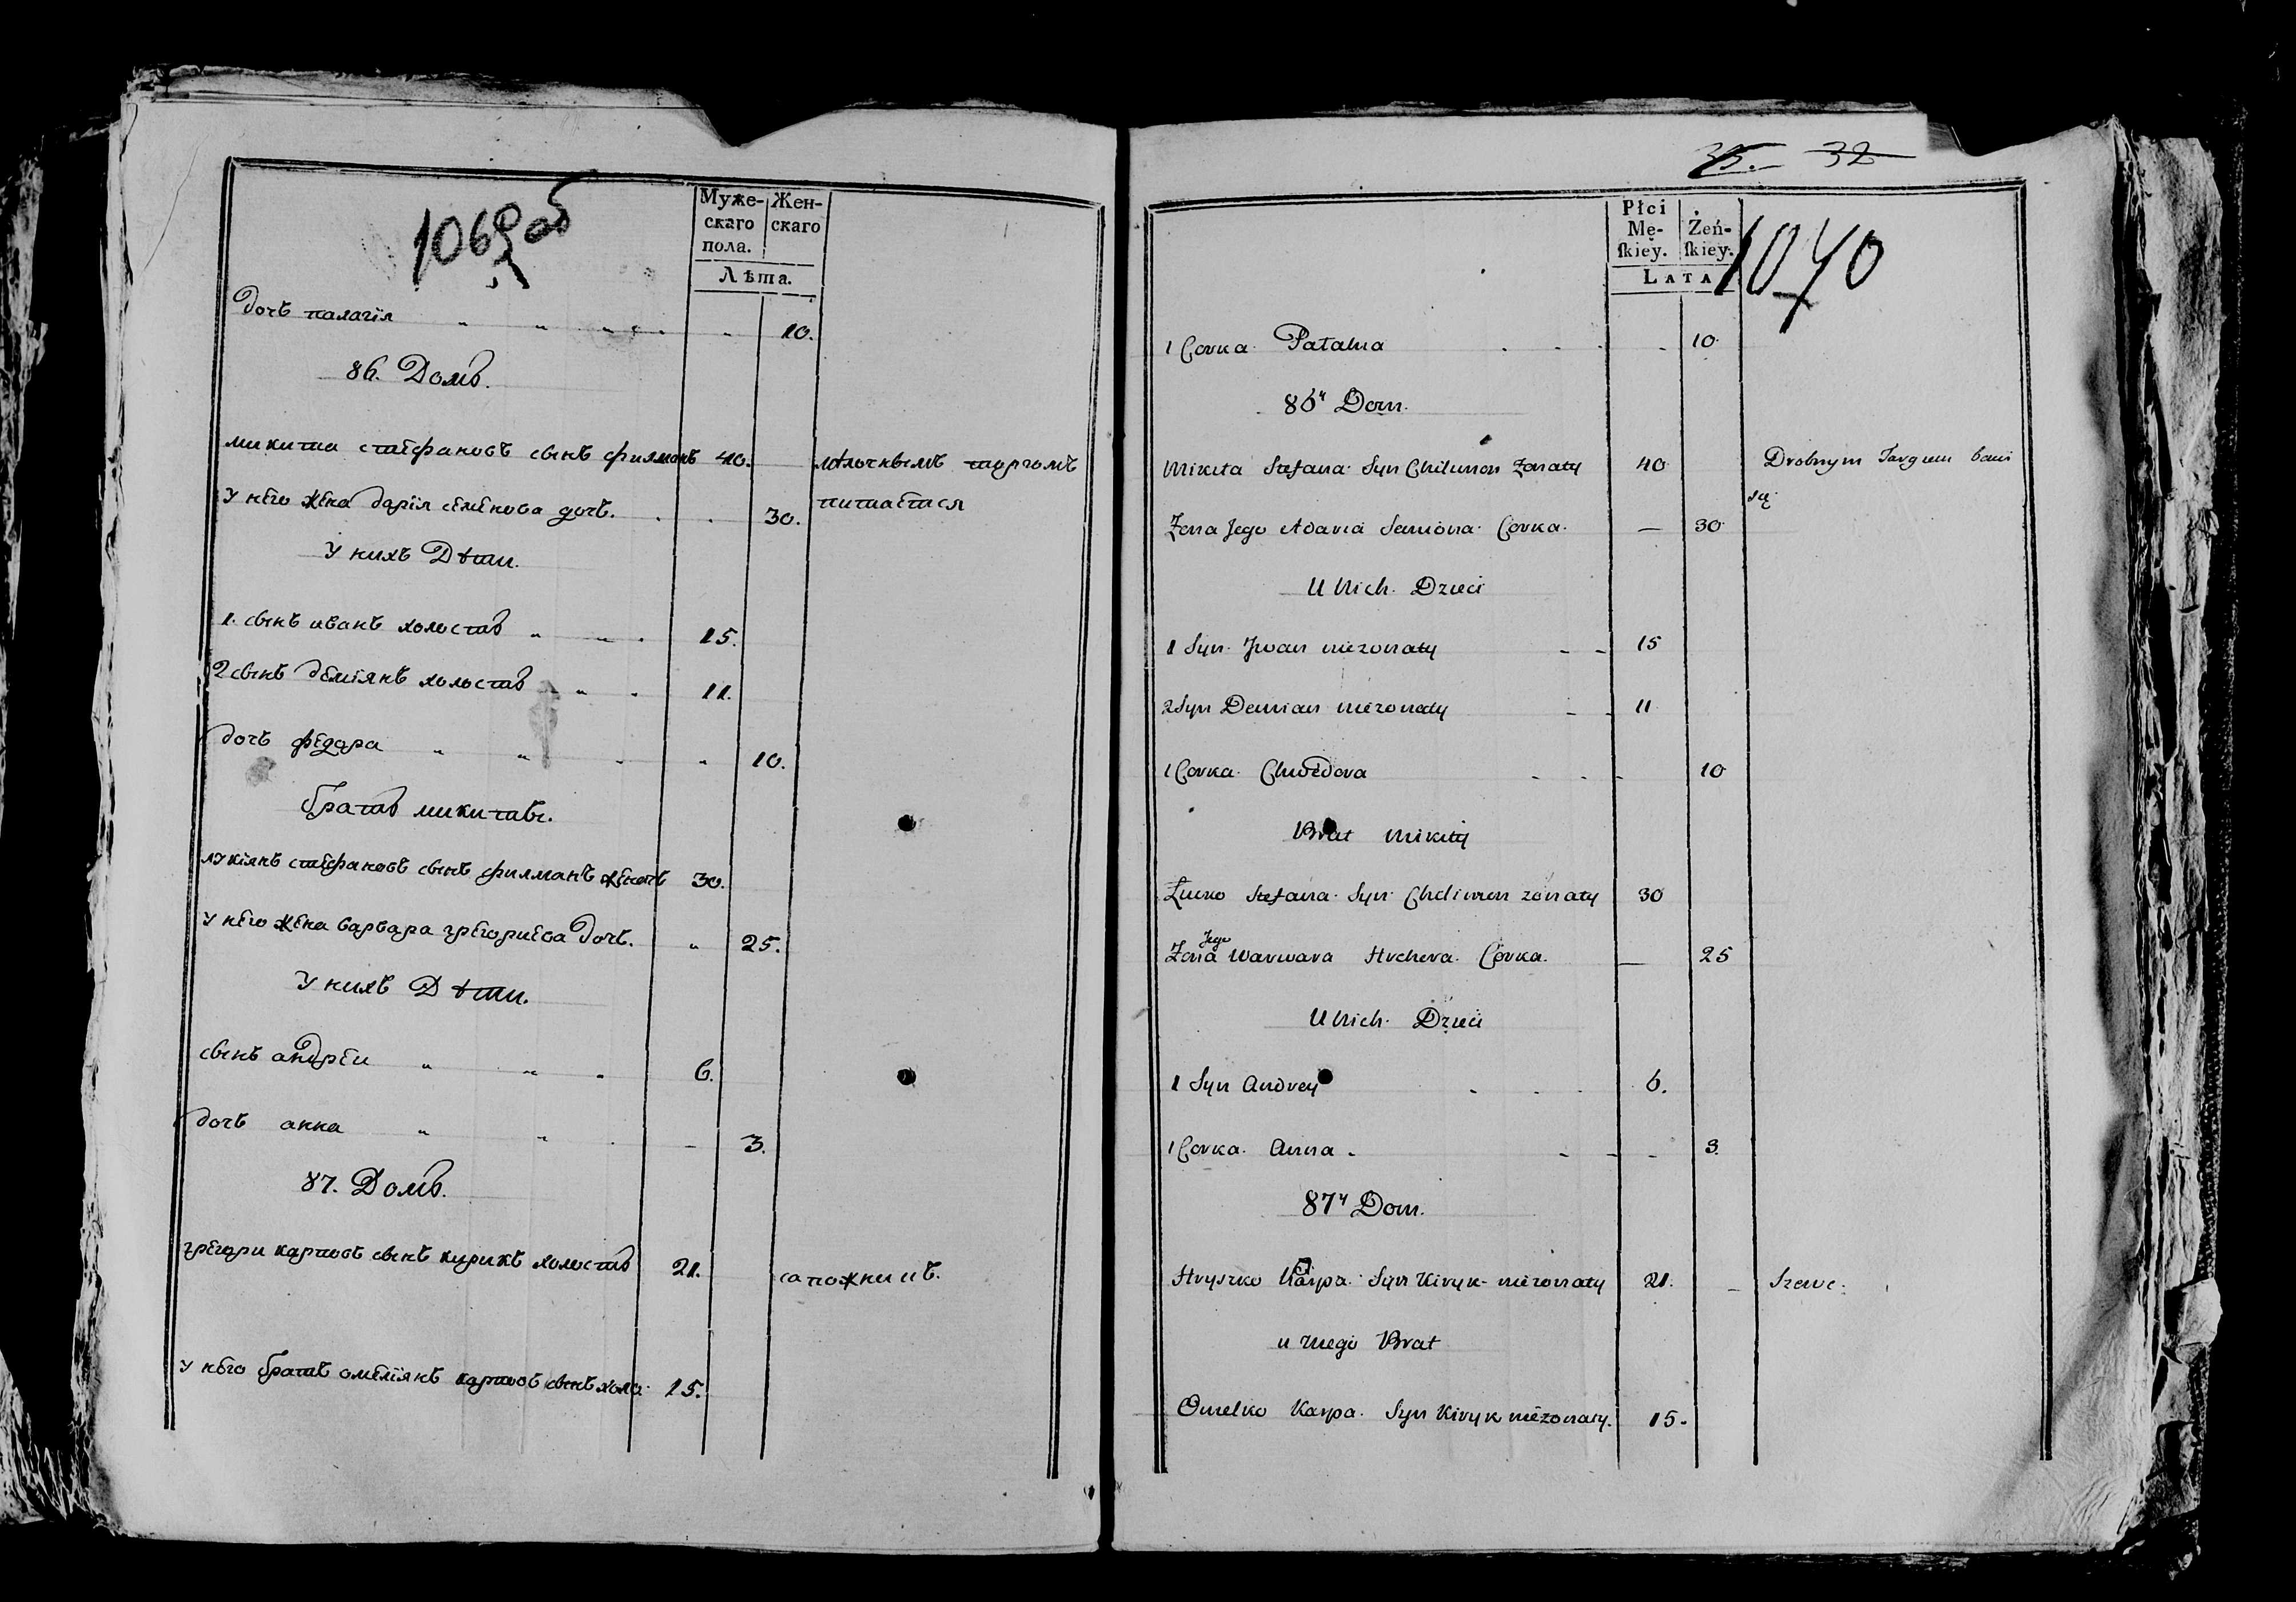 1069 об
Муже-
скаго
пола.
Жен-
скаго
Лѣта.
дочь палагія 10.
86. Домъ.
микита стефановъ сынъ филмонъ 40. мѣлочнымъ торгомъ
питается
у него жена дарія семенова дочь. 30.
У нихъ Дѣти.
1. сынъ иванъ холостъ 15.
2 сынъ деміянъ холостъ 11.
дочь федора 10.
братъ микиты.
лукіянъ стефановъ сынъ филманъ женатъ 30.
у него жена варвара грегориева дочь. 25.
У нихъ Дѣти.
сынъ андреи 6.
дочь анна 3.
87. Домъ.
грегори карповъ сынъ кирикъ холостъ 21. сапожницъ.
у него братъ омеліянъ карповъ сынъ холо 15.
32
Płci
Mę-
ſkiey.
Żeń-
ſkiey.
LATA
1070
1 Corka Patahia 10
86y Dom.
Mikita Stefana Syn Chilimon żonaty 40 Drobnym Targiem bawi
się
Żona Jego Adaria Semiona Corka 30
U Nich Dzieci
1 Syn Jwan nieżonaty 15
2 Syn Demian nieżonaty 11
1 Corka Chwedora 10
Brat Mikity
Łucko Stefana Syn Chelimon żonaty 30
Żona Jego Warwara Hrehera Corka 25
U Nich Dzieci
1 Syn Andrey 6.
1 Corka Anna 3.
87y Dom.
Hryszko Karpa Syn Kiryk nieżonaty 21. Szewc.
u niego Brat
Omelko Karpa Syn Kiryk nieżonaty. 15.